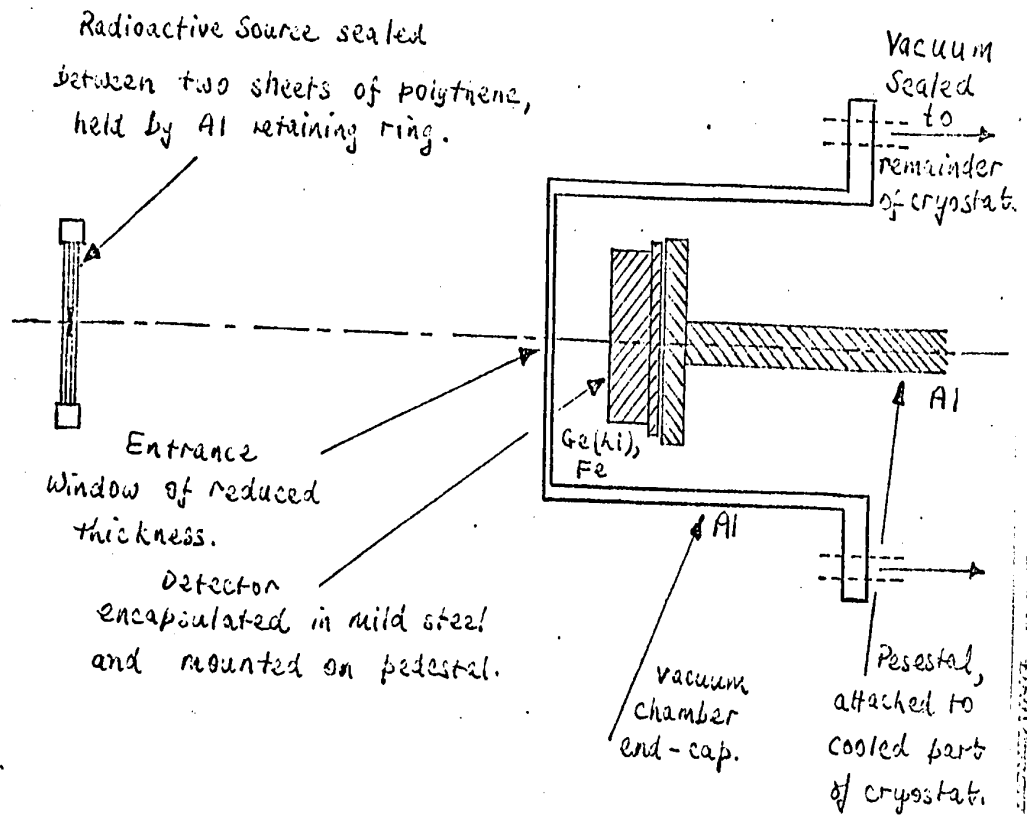 Radioactive Source sealed
between two sheets of polythene,
held by Al retaining ring.
Vacuum
Sealed
to
remainder
of cryostat.
Al
Ge(hi),
Fe
Entrance
Window of reduced
thickness.
Al
Detector
encapsulated in mild steel
and mounted on pedestal.
vacuum
chamber
end-cap.
Pesestal,
attached to
cooled part
of cryostat.